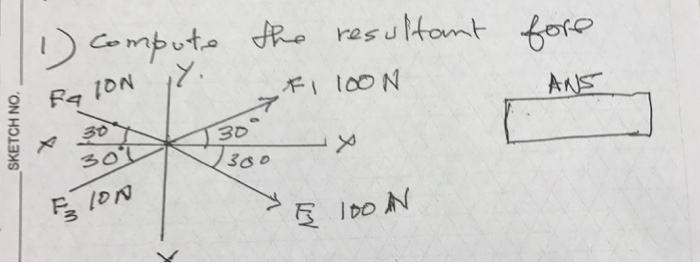 1) Compute the resultant fore
F4 10N Y. F1 100N ANS
SKETCH NO.
X 30° 30° X
30° 300
F3 10N F2 100 N
Y